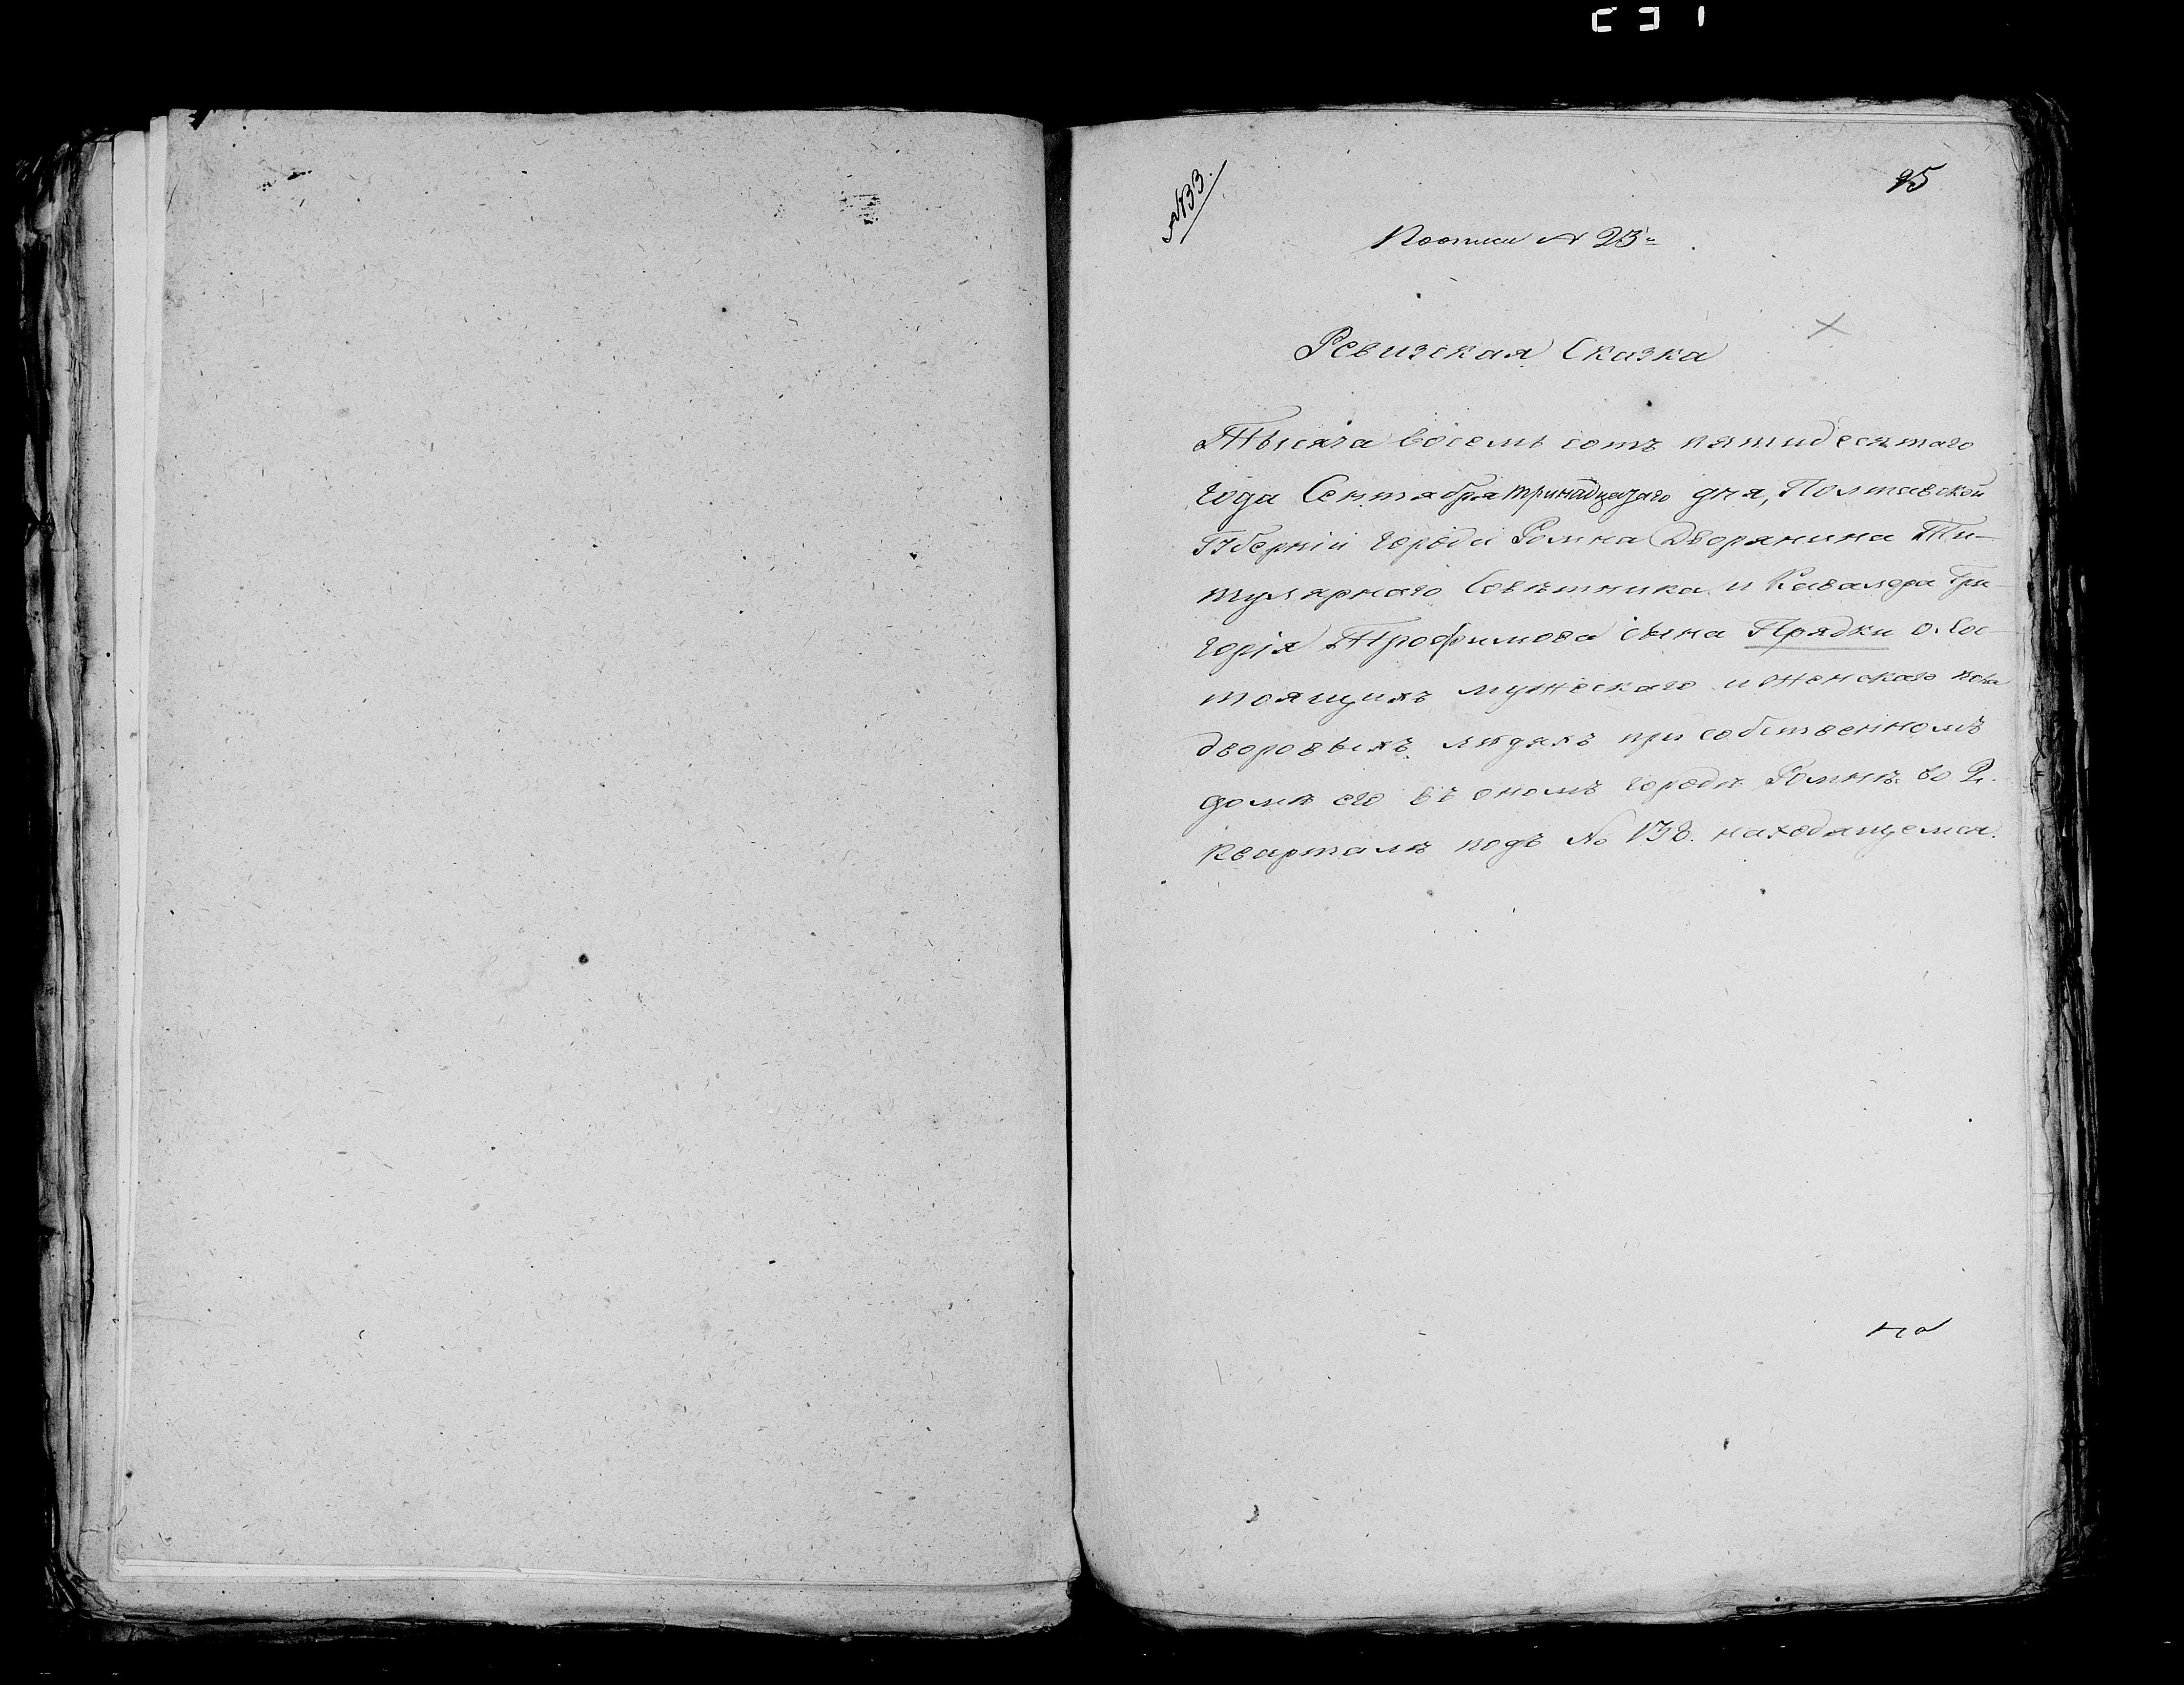 №33.
95
По описи № 23й
Ревизская Сказка
Тысяча восемь сотъ пятидесятаго
года Сентября тринадцатаго дня, Полтавской
Губерніи города Ромна Дворянина Ти-
тулярнаго Совѣтника и Кавалера Гри-
горія Трофимова сына Прядки о Сос-
тоящихъ мужескаго и женскаго пола
дворовыхъ людяхъ при собственномъ
домѣ его въ ономъ городѣ Ромнѣ во 2.
кварталѣ подъ № 138. находящемся.